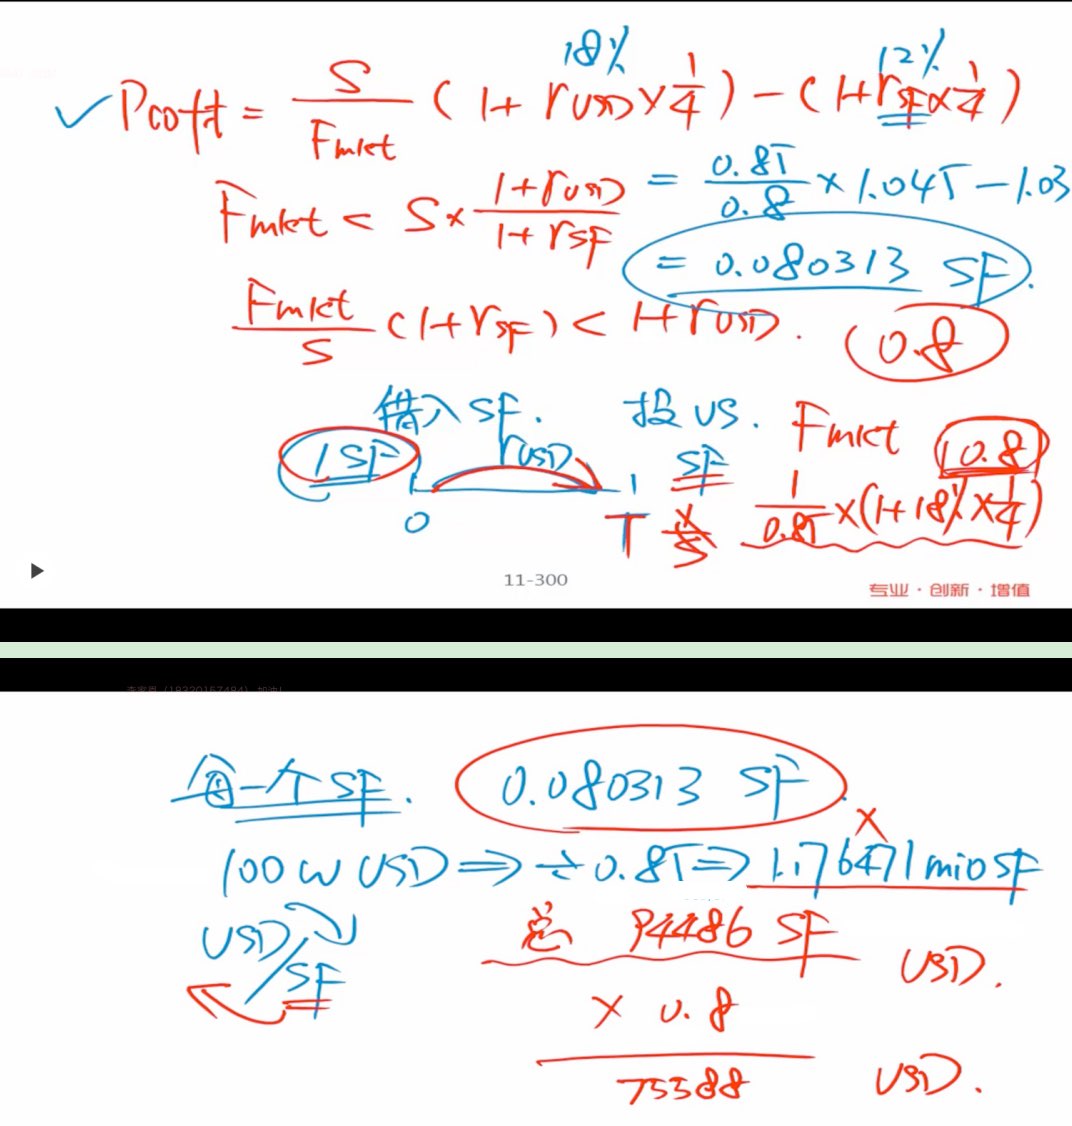 18% 12%
✓ Profit = S/Fmkt (1 + rUSD × 1/4) − (1 + rSF × 1/4)
Fmkt < S × (1 + rUSD)/(1 + rSF) = 0.85/0.8 × 1.045 − 1.03
= 0.080313 SF.
Fmkt/S (1 + rSF) < 1 + rUSD. (0.8)
借入 SF. 投 US. Fmkt (0.8)
1 SF rUSD 1 SF 1/0.85 × (1 + 18% × 1/4)
0 T
11-300
专业 · 创新 · 增值
每一个 SF. 0.080313 SF.
×
100 W USD ⇒ ÷ 0.85 ⇒ 1.176471 mio SF
USD/SF
总 94486 SF
USD.
× 0.8
75588 USD.